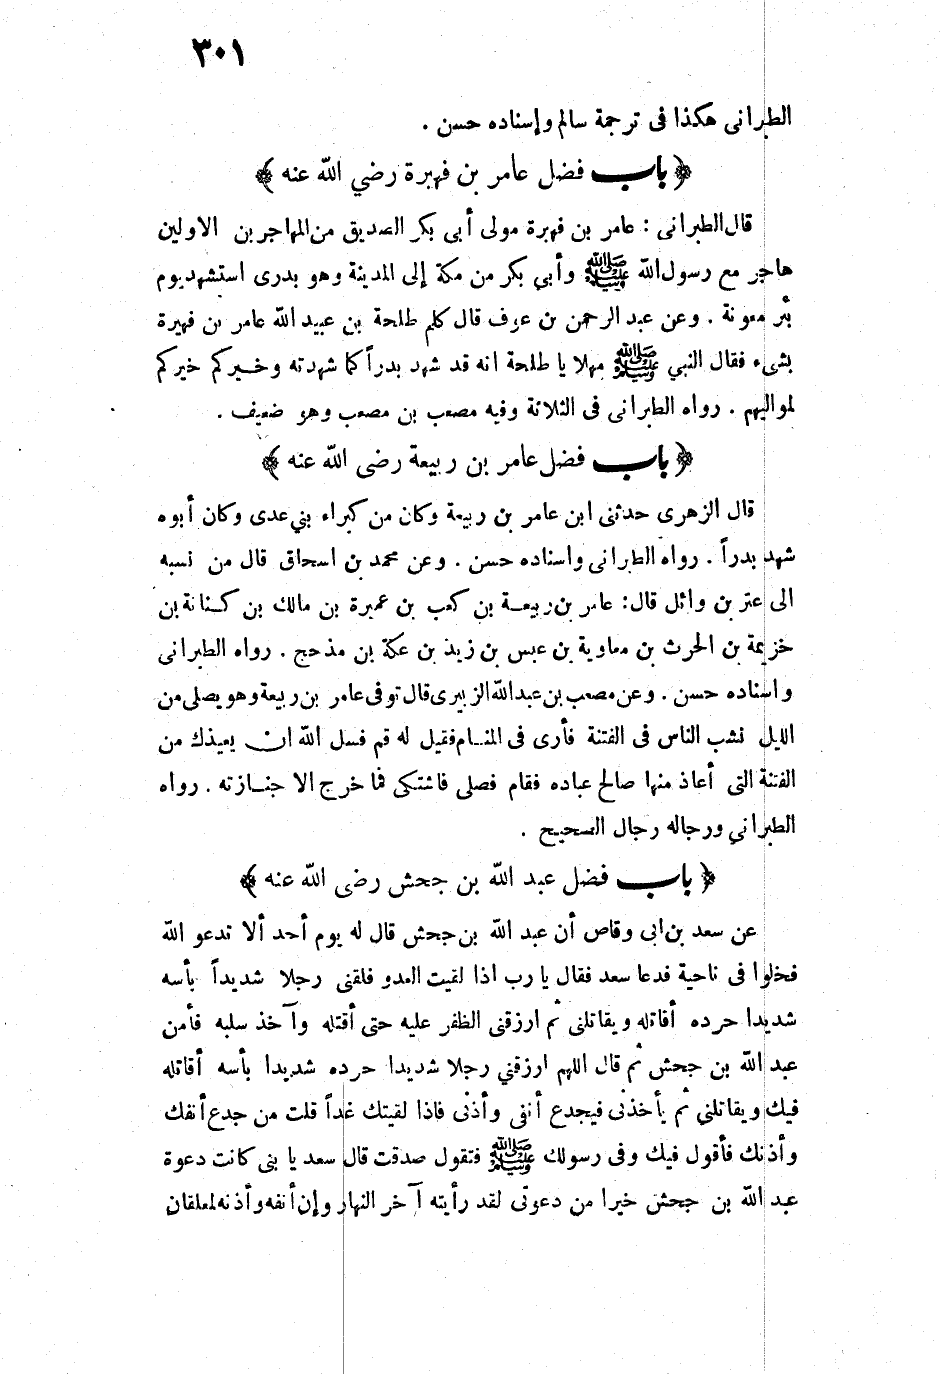 ٣٠١
الطبرانى هكذا فى ترجمة سالم وإسناده حسن .
﴿ باب فضل عامر بن فهيرة رضي الله عنه ﴾
قال الطبرانى : عامر بن فهيرة مولى أبى بكر الصديق من المهاجرين الاولين
هاجر مع رسول الله ﷺ وأبي بكر من مكة إلى المدينة وهو بدرى استشهد يوم
بئر معونة . وعن عبد الرحمن بن عوف قال كلم طلحة بن عبيد الله عامر بن فهيرة
بشىء فقال النبي ﷺ مهلا يا طلحة انه قد شهد بدراً كما شهدته وخيركم خيركم
لمواليهم . رواه الطبرانى فى الثلاثة وفيه مصعب بن مصعب وهو ضعيف .
﴿ باب فضل عامر بن ربيعة رضى الله عنه ﴾
قال الزهرى حدثنى ابن عامر بن ربيعة وكان من كبراء بني عدى وكان أبوه
شهد بدراً . رواه الطبرانى واسناده حسن . وعن محمد بن اسحاق قال من نسبه
الى عنز بن وائل قال : عامر بن ربيعة بن كعب بن عميرة بن مالك بن كنانة بن
خزيمة بن الحرث بن معاوية بن عبس بن زيد بن عكة بن مذحج . رواه الطبرانى
واسناده حسن . وعن مصعب بن عبد الله الزبيرى قال توفى عامر بن ربيعة وهو يصلى من
الليل نشب الناس فى الفتنة فأرى فى المنام فقيل له قم فسل الله ان يعيذك من
الفتنة التى أعاذ منها صالح عباده فقام فصلى فاشتكى فما خرج الا جنازته . رواه
الطبراني ورجاله رجال الصحيح .
﴿ باب فضل عبد الله بن جحش رضى الله عنه ﴾
عن سعد بن ابى وقاص أن عبد الله بن جحش قال له يوم أحد ألا تدعو الله
فخلوا فى ناحية فدعا سعد فقال يا رب اذا لقيت العدو فلقنى رجلا شديداً بأسه
شديدا حرده أقاتله ويقاتلنى ثم ارزقنى الظفر عليه حتى أقتله وآخذ سلبه فأمن
عبد الله بن جحش ثم قال اللهم ارزقني رجلا شديدا حرده شديدا بأسه أقاتله
فيك ويقاتلني ثم يأخذنى فيجدع أنفى وأذنى فاذا لقيتك غداً قلت من جدع أنفك
وأذنك فأقول فيك وفى رسولك ﷺ فتقول صدقت قال سعد يا بنى كانت دعوة
عبد الله بن جحش خيرا من دعوتى لقد رأيته آخر النهار وإن أنفه وأذنه لمعلقان